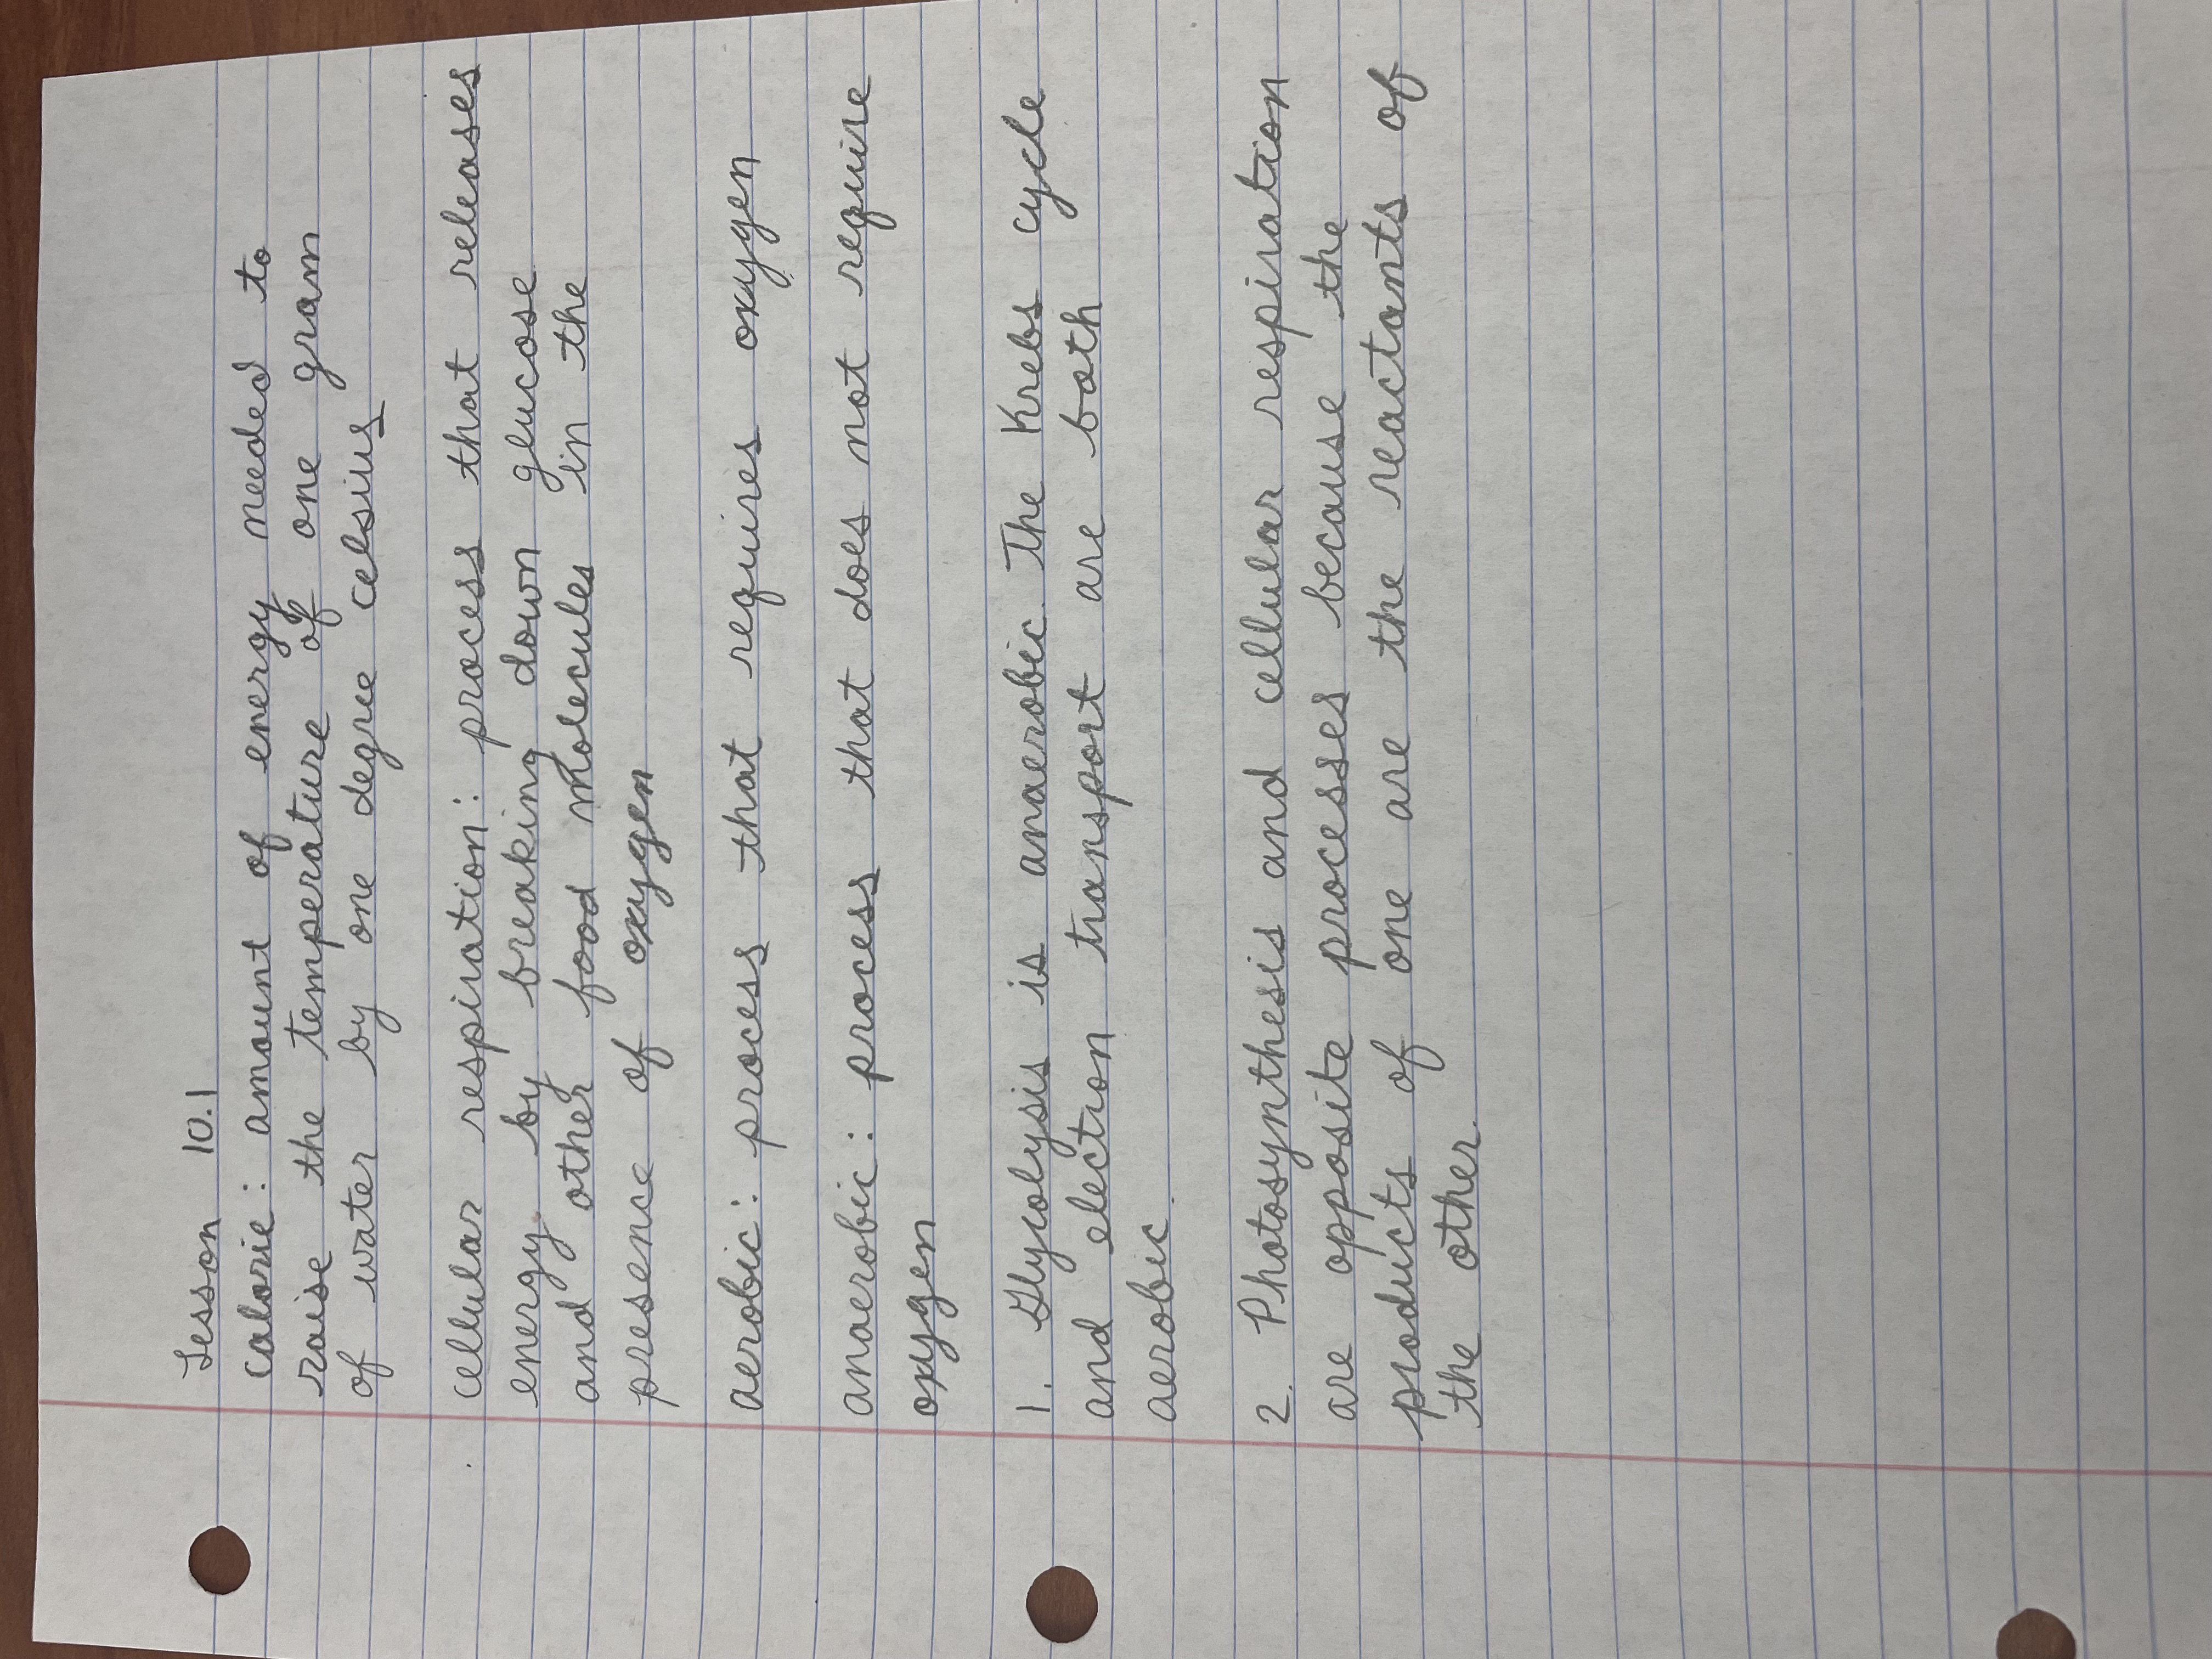 Lesson 10.1
calorie: amount of energy needed to
raise the temperature of one gram
of water by one degree celsius
cellular respiration: process that releases
energy by breaking down glucose
and other food molecules in the
presence of oxygen
aerobic: process that requires oxygen
anaerobic: process that does not require
oxygen
1. Glycolysis is anaerobic. The Krebs cycle
and electron transport are both
aerobic.
2. Photosynthesis and cellular respiration
are opposite processes because the
products of one are the reactants of
the other.